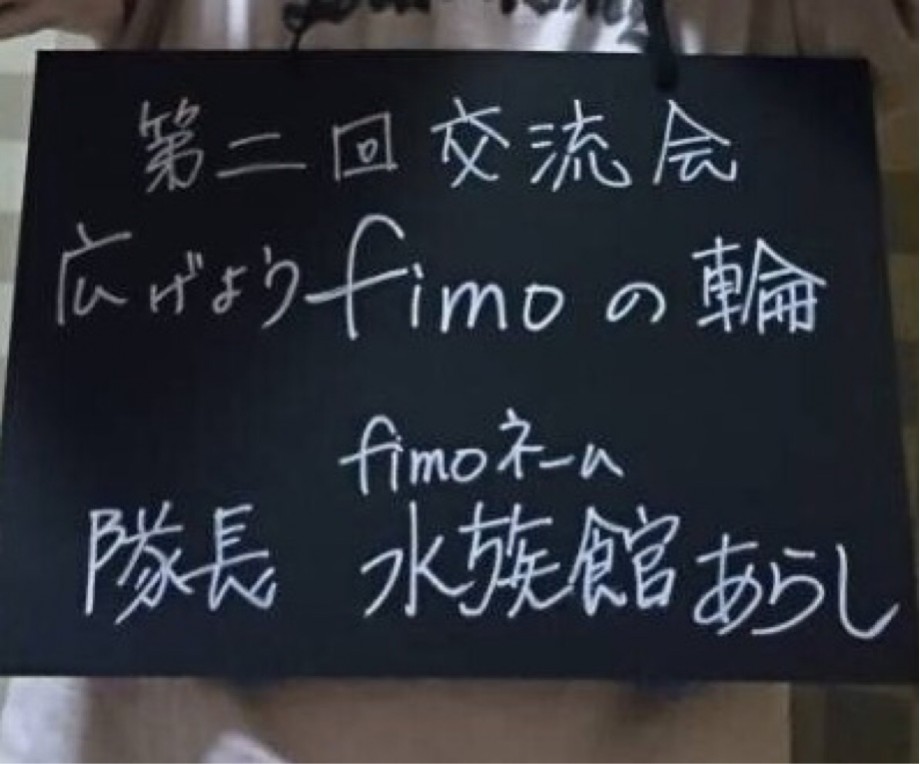 第二回交流会
広げようfimoの輪
fimoネーム
隊長 水族館あらし